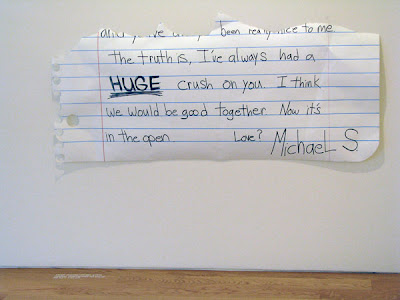 been really nice to me
the truth is, I've always had a
HUGE crush on you. I think
we would be good together. Now it's
in the open. Love? Michael S.